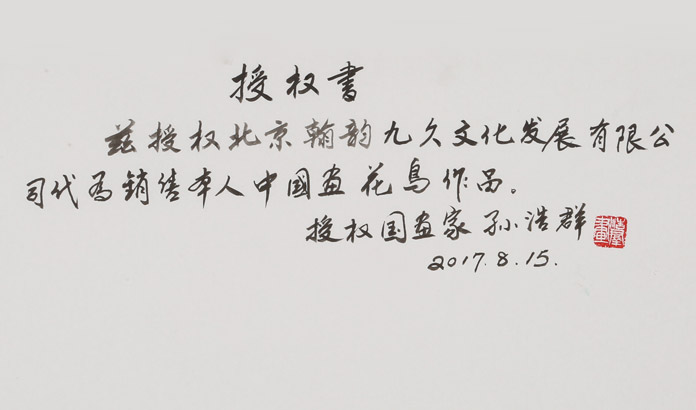 授权书
兹授权北京翰韵九久文化发展有限公
司代为销售本人中國画花鳥作品。
授权国画家孙浩群
2017.8.15.